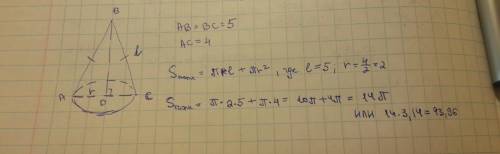 B
AB = BC = 5
AC = 4
l
Sполн = πrl + πr², где l = 5, r = 4/2 = 2
A r O C
Sполн = π · 2 · 5 + π · 4 = 10π + 4π = 14π
или 14 · 3,14 = 43,96